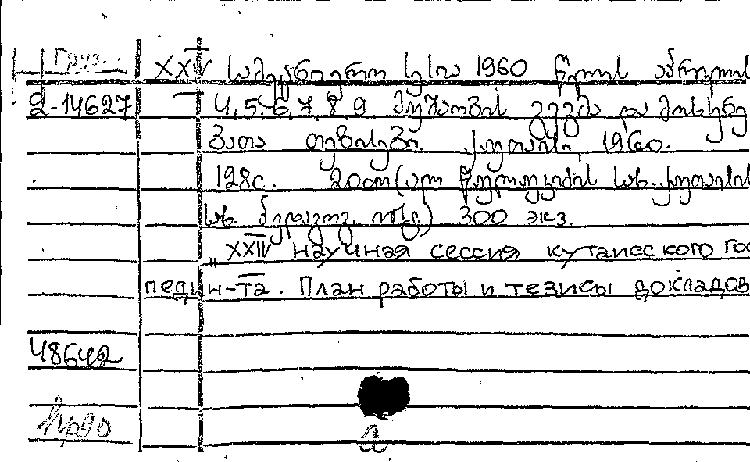 Груз. XXIV სამეცნიერო სესია 1960 წლის აპრილის
2-14627 4, 5, 6, 7, 8, 9 მუშაობის გეგმა და მოხსენე
ბათა თეზისები. ქუთაისი, 1960.
128с. 20см (ალ. წულუკიძის სახ. ქუთაისის
სახ. პედაგოგ. ინსტ) 300 экз.
"XXIV научная сессия кутаисского гос
педин-та. План работы и тезисы докладов
48642